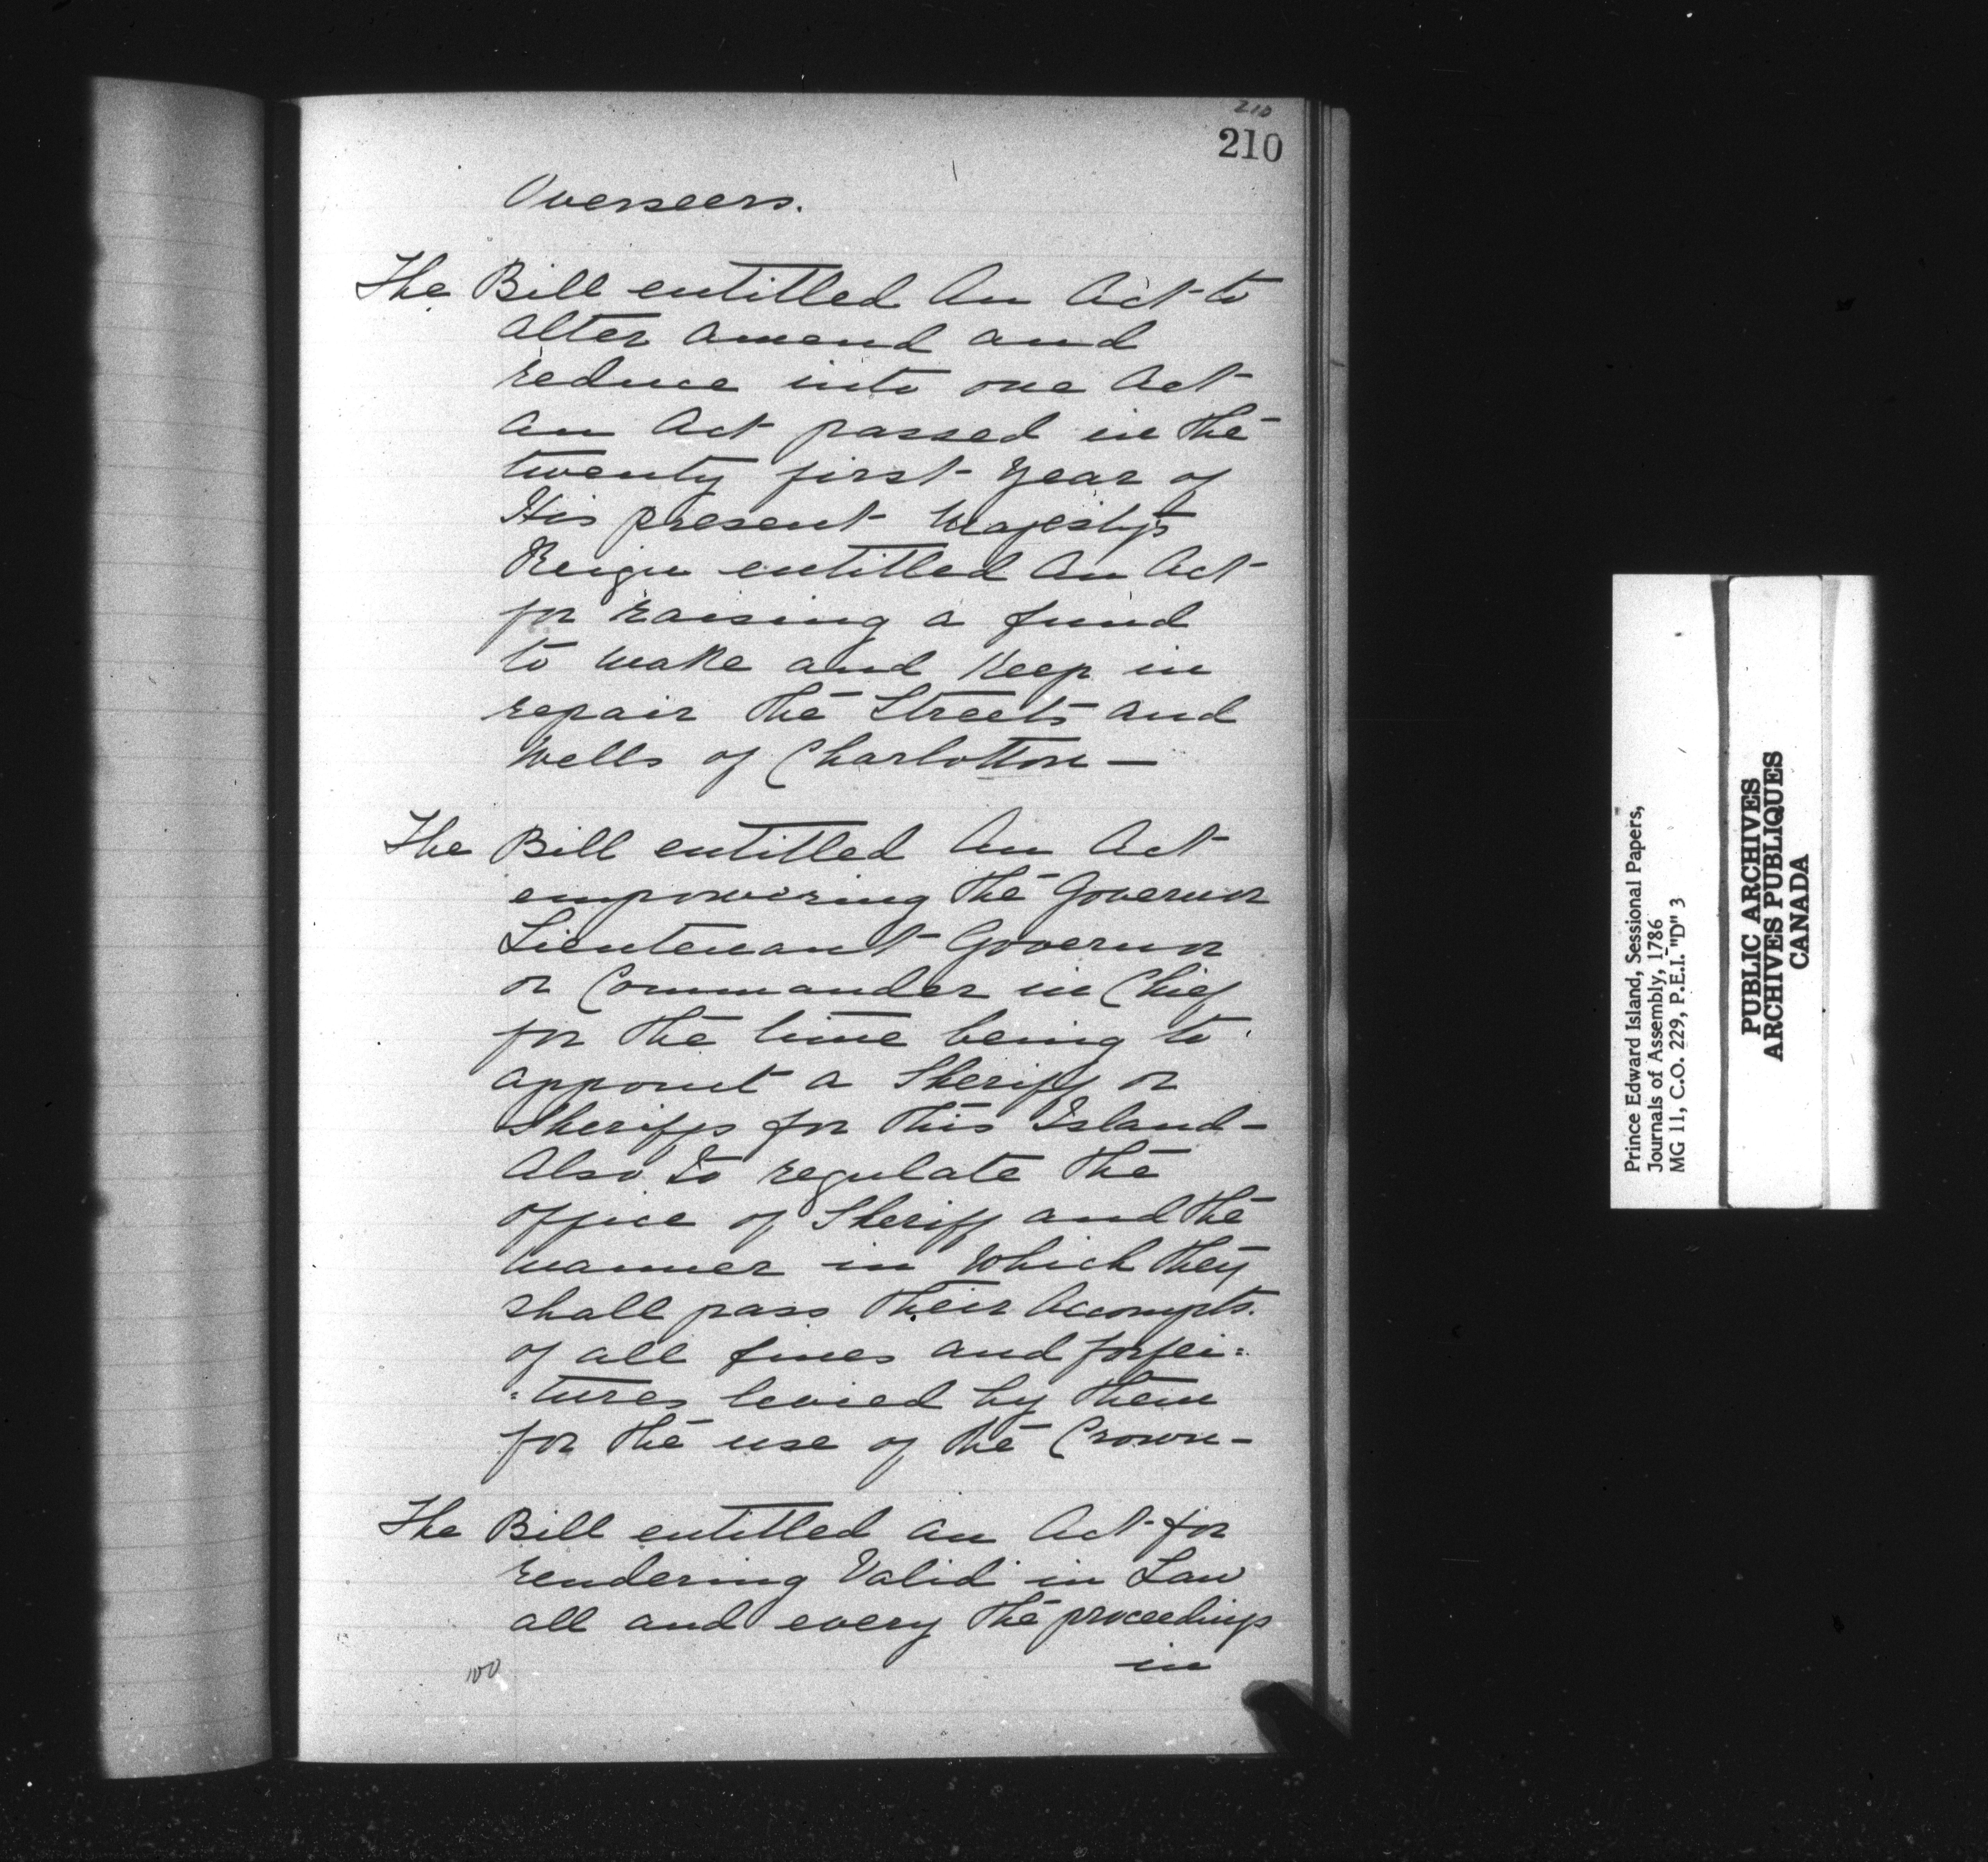 210
210
Overseers.
The Bill entitled An Act to
alter amend and
reduce into one Act
an Act passed in the
twenty first Year of
His present Majesty's
Reign entitled An Act
for raising a fund
to make and keep in
repair the Streets and
Wells of Charlotton —
The Bill entitled An Act
empowering the Governor
Lieutenant Governor
or Commander in Chief
for the time being to
appoint a Sheriff or
Sheriffs for this Island -
Also to regulate the
office of Sheriff and the
manner in which they
shall pass their Accompts.
of all fines and forfei=
=tures levied by them
for the use of the Crown -
The Bill entitled an Act for
rendering Valid in Law
all and every the proceedings
in
100
Prince Edward Island, Sessional Papers,
Journals of Assembly, 1786
MG 11, C.O. 229, P.E.I. "D" 3
PUBLIC ARCHIVES
ARCHIVES PUBLIQUES
CANADA